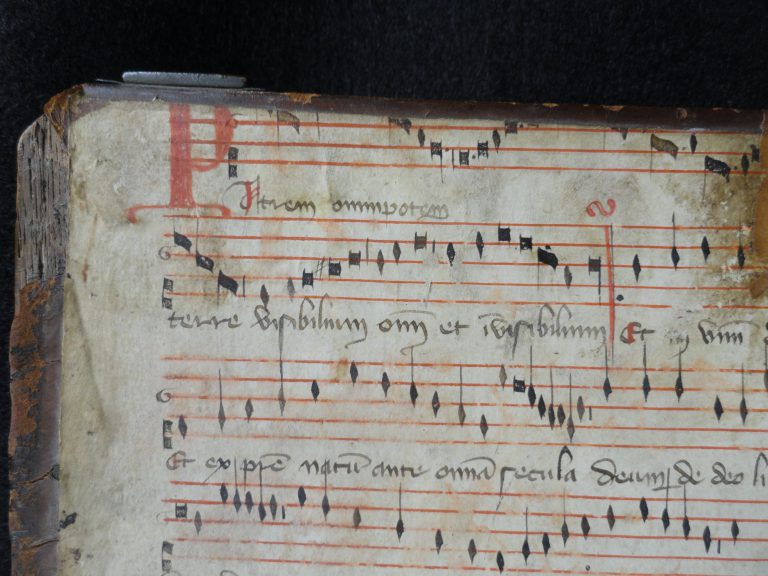 Patrem omnipotem
terre visibilium om̄ et īvisibilium Et in vnū
Et ex pr̄e natū ante om̄ia secula deum de deo